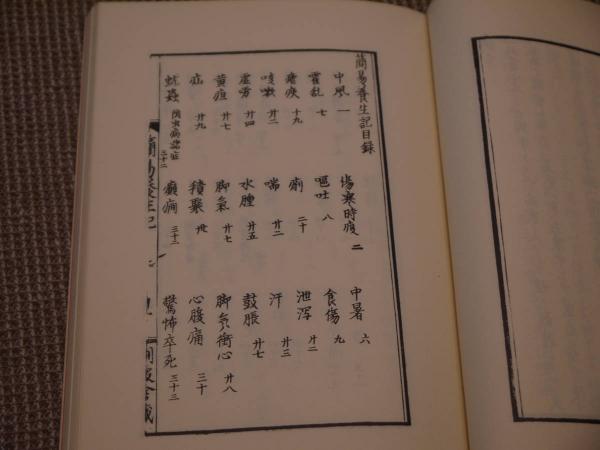 簡易養生記目録
中風 一 傷寒時疫 二 中暑 六
霍乱 七 嘔吐 八 食傷 九
瘧疾 十九 痢 二十 泄瀉 廿二
咳嗽 廿二 喘 廿二 汗 廿三
虚労 廿四 水腫 廿五 鼓脹 廿七
黄疸 廿七 脚氣 廿七 脚氣衝心 廿八
疝 廿九 積聚 卅 心腹痛 三十
蚘蟲 三十二 癲癇 三十三 驚怖卒死 三十三
簡易養生記